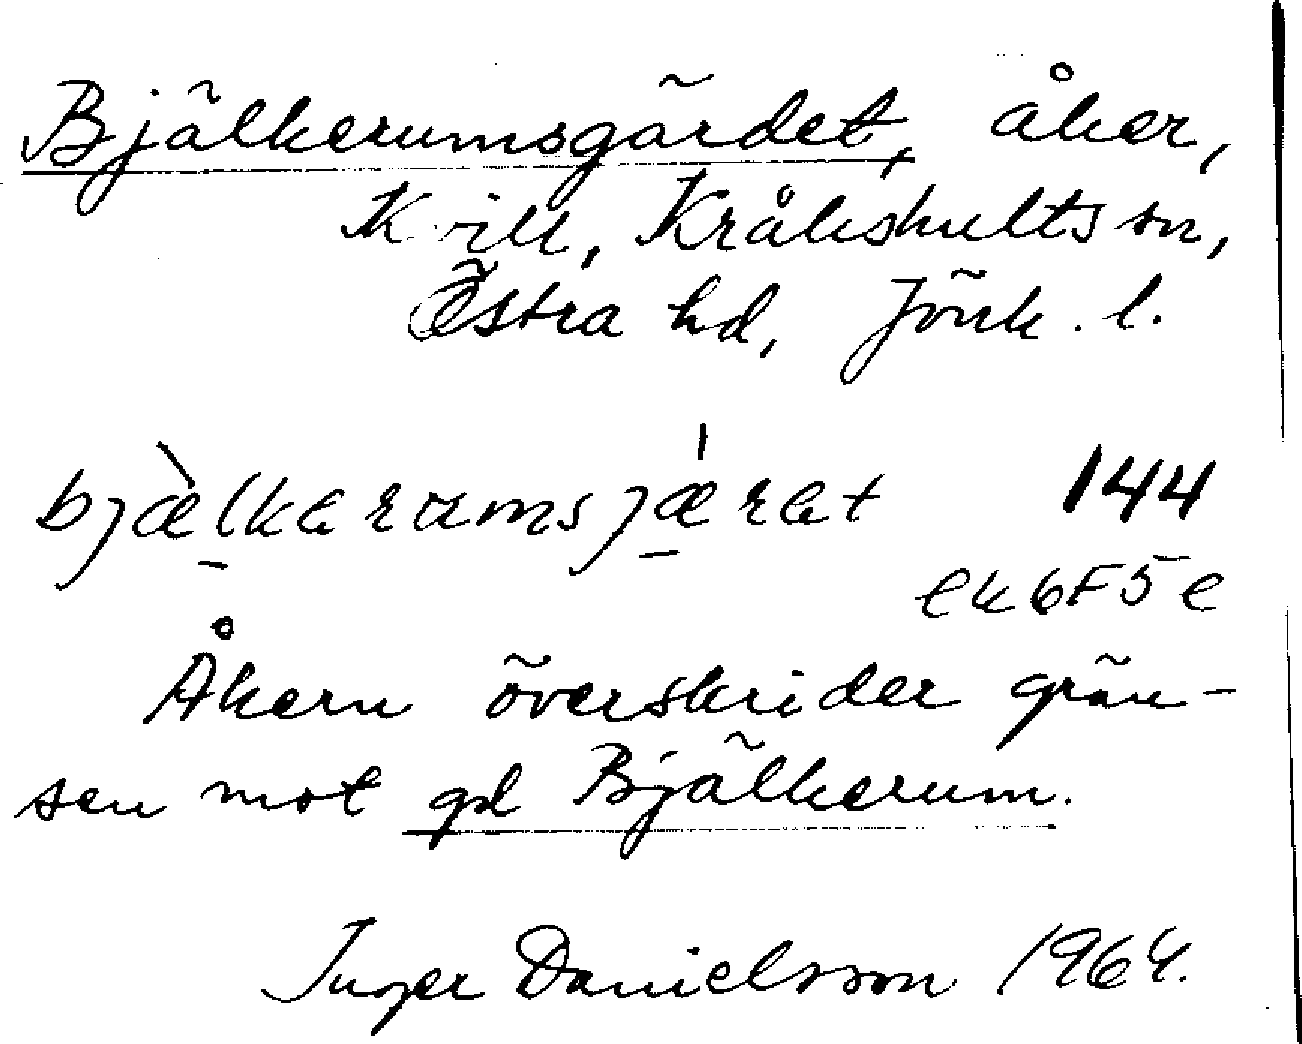 Bjälkerumsgärdet, åker,
Kvill, Kråkshults sn,
Östra hd, Jönk. l.
bjæ̀lkarumsjǽrat 144
ek 6F5e
Åkern överskrider grän-
sen mot gd Bjälkerum.
Inger Danielsson 1964.